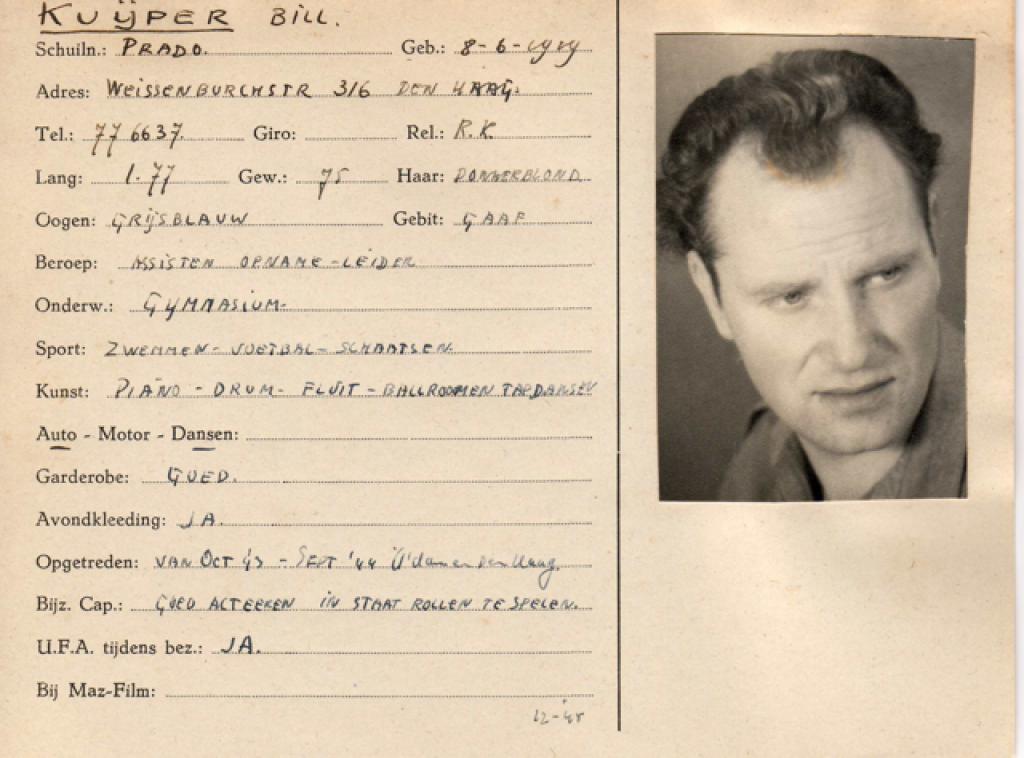 KUIJPER BILL.
Schuiln.: PRADO. Geb.: 8-6-1919
Adres: WEISSENBURCHSTR 316 DEN HAAG.
Tel.: 776637. Giro: Rel.: R.K
Lang: 1.77 Gew.: 75 Haar: DONKERBLOND
Oogen: GRIJSBLAUW Gebit: GAAF
Beroep: ASSISTEN OPNAME-LEIDER
Onderw.: GYMNASIUM
Sport: ZWEMMEN - VOETBAL - SCHAATSEN
Kunst: PIANO - DRUM - FLUIT - BALLROOMEN TAPDANSEN
Auto - Motor - Dansen:
Garderobe: GOED.
Avondkleeding: JA.
Opgetreden: VAN OCT '43 - SEPT '44 A'dam en Den Haag.
Bijz. Cap.: GOED ACTEEREN IN STAAT ROLLEN TE SPELEN.
U.F.A. tijdens bez.: JA.
Bij Maz-Film: